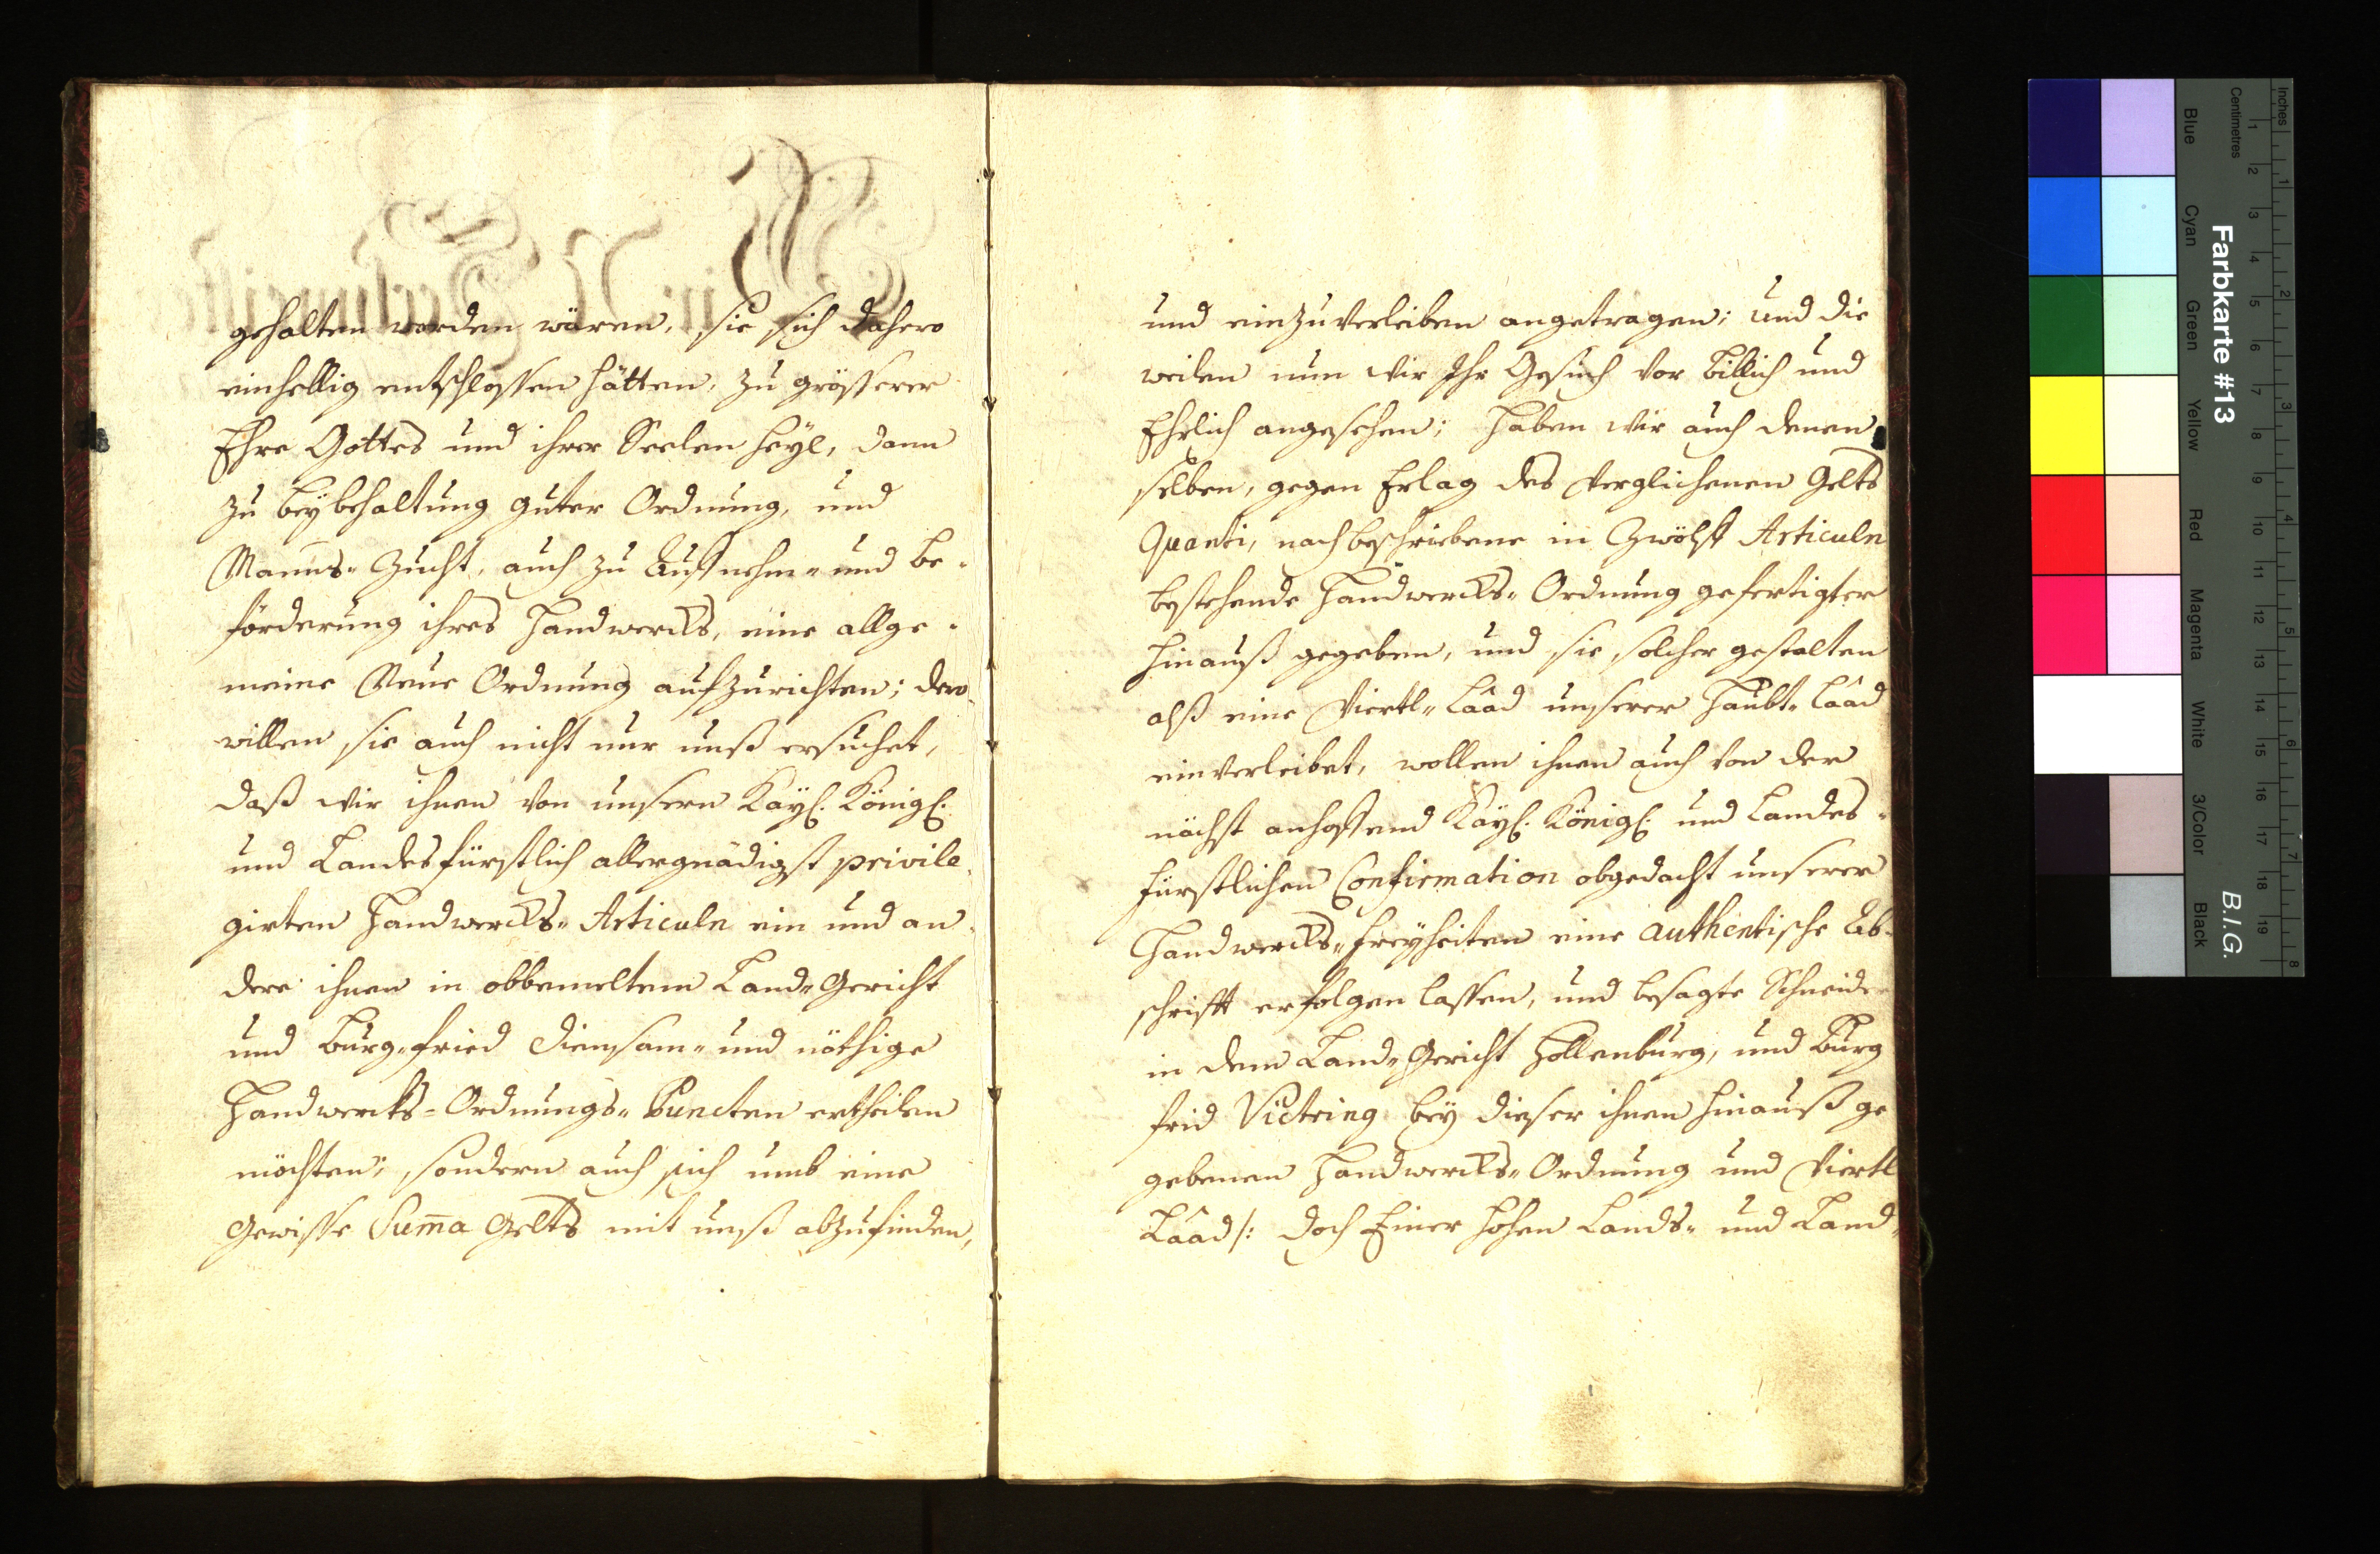 gehalten worden wären, sie sich dahero
einhellig entschlossen hätten, zu grösserer
Ehre Gottes und ihrer Seelen heyl, dann
zu beybehaltung guter Ordnung, und
Manns-Zucht, auch zu Auffnehm- und be-
förderung ihres Handwercks, eine allge-
meine Neue Ordnung aufzurichten; dero-
willen sie auch nicht nur unß ersuchet,
daß wir ihnen von unsern Kayl. Königl.
und Landesfürstlich allergnädigst privile-
girten Handwercks-Articuln ein und an-
dere ihnen in obbemeltem Land-Gericht
und Burg-fried diensam- und nöthige
Handwercks-Ordnungs-Puncten ertheilen
möchten; sondern auch sich umb eine
Gewisse Suma Gelts mit unß abzufinden,
und einzuverleiben angetragen; und die
weilen nun wir Ihr Gesuch vor billich und
Ehrlich angesehen; Haben wir auch denen
selben, gegen Erlag des verglichenen Gelts
Quanti, nachbeschriebene in Zwölff Articuln
bestehende Handwercks-Ordnung gefertigter
hinauß gegeben, und sie solcher gestalten
alß eine Viertl-Lâad unserer Haubt-Lâad
einverleibet, wollen ihnen auch von der
nächst anhoffend Kayl. Königl. und Landes-
fürstlichen Confirmation obgedacht unserer
Handwercks-freyheiten eine authentische Ab-
schrifft erfolgen lassen, und besagte Schneide
in dem Land-Gericht Hollenburg, und Burg
frid Victring bey dieser ihnen hinauß ge
gebenen Handwercks-Ordnung und Viertl
Lâad /: doch Einer hohen Lands- und Land-
Farbkarte #13
B.I.G.
Inches
Centimetres
1 2 3 4 5 6 7 8
1 2 3 4 5 6 7 8 9 10 11 12 13 14 15 16 17 18 19
Blue
Cyan
Green
Yellow
Red
Magenta
White
3/Color
Black